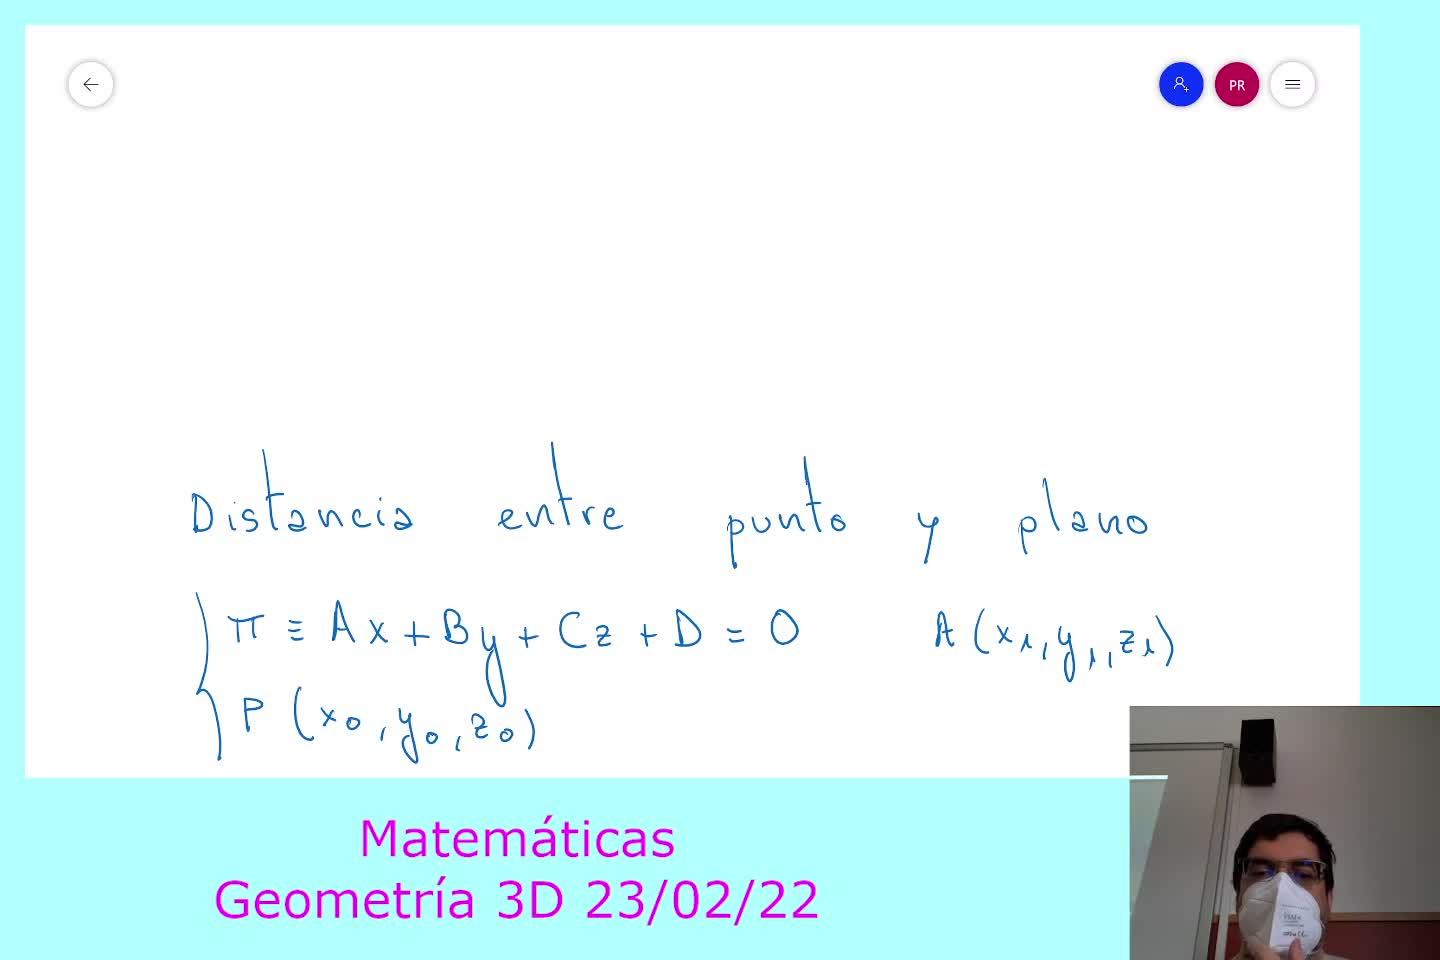 PR
Distancia entre punto y plano
π ≡ Ax + By + Cz + D = 0 A (x₁, y₁, z₁)
P (x₀, y₀, z₀)
Matemáticas
Geometría 3D 23/02/22